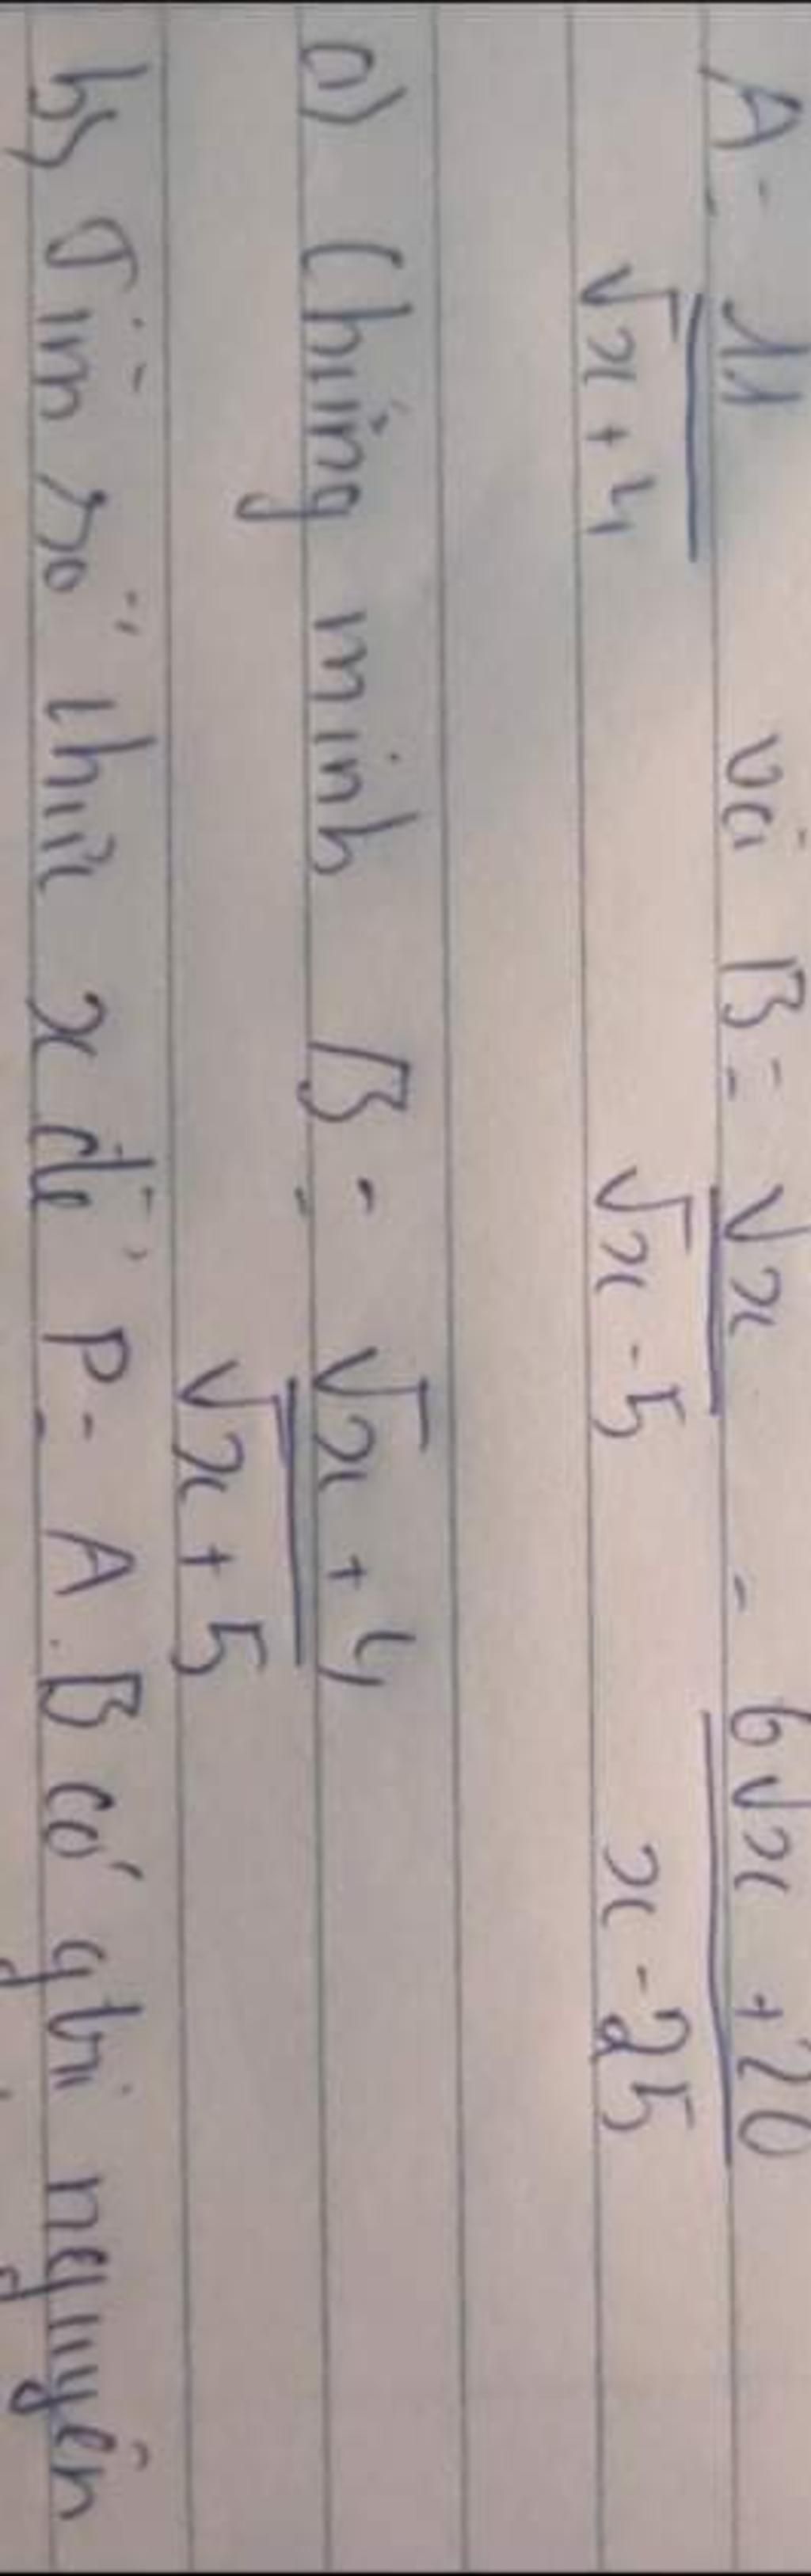 A = 11/(√x + 4) và B = √x/(√x - 5) - (6√x + 20)/(x - 25)
a) Chứng minh B = (√x + 4)/(√x + 5)
b) Tìm số thực x để P = A.B có gtri nguyên